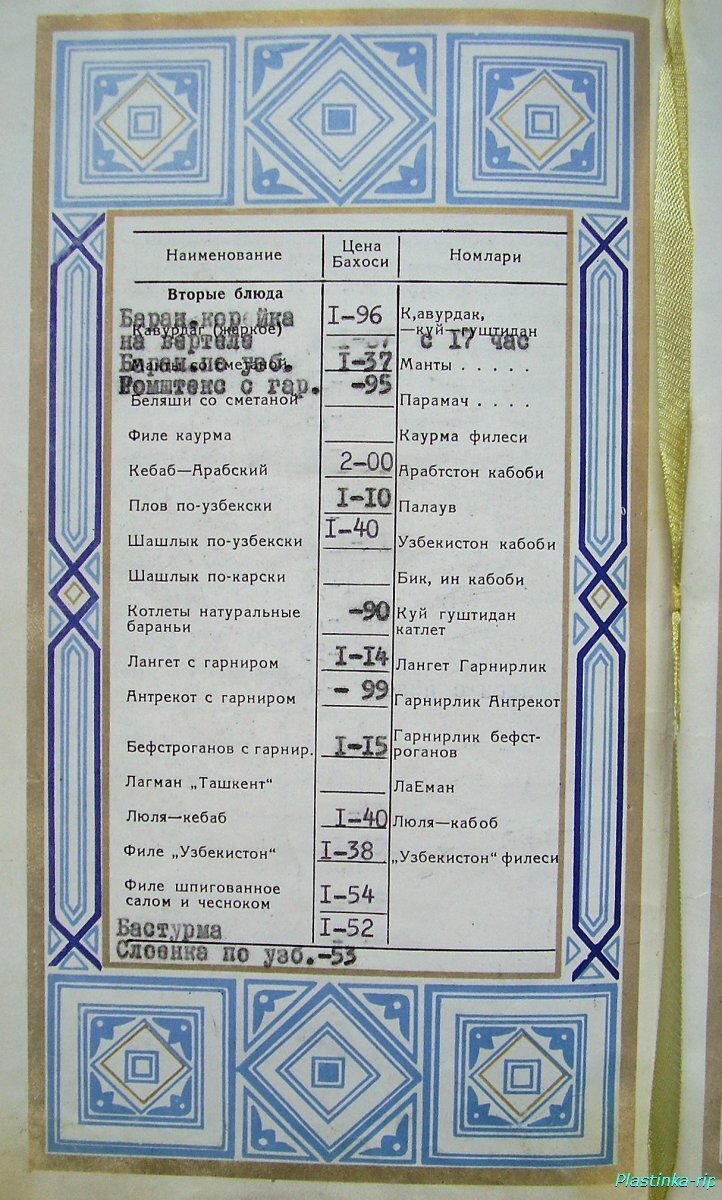 Наименование Цена Бахоси Номлари
Вторые блюда
Баран.корейка I-96 К,авурдак,
Кавурдаг (жаркое) —куй гуштидан
на вертеле с 17 час
Баран.по узб. I-37
Манты со сметаной Манты . . . . .
Ромштекс с гар. -95
Беляши со сметаной Парамач . . . .
Филе каурма Каурма филеси
Кебаб—Арабский 2-00 Арабтстон кабоби
Плов по-узбекски I-IO Палаув
Шашлык по-узбекски I-40 Узбекистон кабоби
Шашлык по-карски Бик, ин кабоби
Котлеты натуральные -90 Куй гуштидан
бараньи катлет
Лангет с гарниром I-I4 Лангет Гарнирлик
Антрекот с гарниром - 99 Гарнирлик Антрекот
Гарнирлик бефст-
Бефстроганов с гарнир. I-I5 роганов
Лагман „Ташкент“ ЛаЕман
Люля—кебаб I-40 Люля—кабоб
Филе „Узбекистон“ I-38 „Узбекистон“ филеси
Филе шпигованное
салом и чесноком I-54
Бастурма I-52
Слоенка по узб.-53
Plastinka-rip